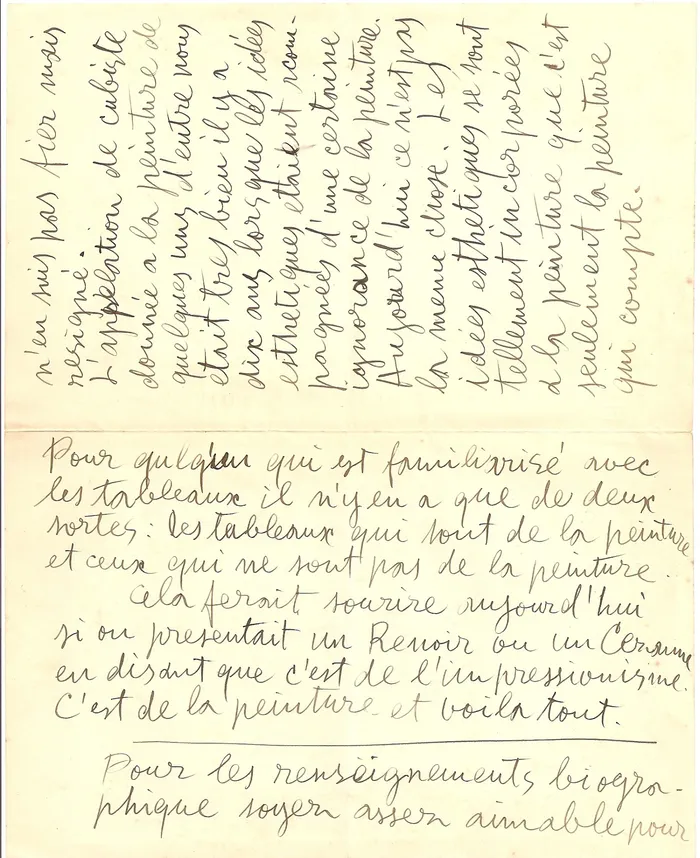 n'en suis pas fier mais
résigné.
L'appelation de cubiste
donnée a la peinture de
quelques uns d'entre nous
était tres bien il y a
dix ans lorsque les idées
esthetiques etaient accom-
pagnées d'une certaine
ignorance de la peinture.
Aujourd'hui ce n'est pas
la meme chose. Les
idées esthétiques se sont
tellement incorporées
a la peinture que c'est
seulement la peinture
qui compte.
Pour quelqu'un qui est familiarisé avec
les tableaux il n'y en a que de deux
sortes : les tableaux qui sont de la peinture
et ceux qui ne sont pas de la peinture.
Cela ferait sourire aujourd'hui
si on presentait un Renoir ou un Cezanne
en disant que c'est de l'impressionisme.
C'est de la peinture et voila tout.
Pour les renseignements biogra-
phique soyez assez aimable pour